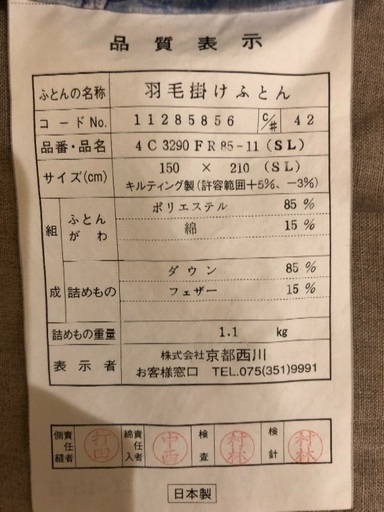 品質表示
ふとんの名称 羽毛掛けふとん
コードNo. 11285856 C/# 42
品番・品名 4C3290FR85-11(SL)
サイズ(cm) 150 × 210 (SL)
キルティング製(許容範囲+5%、-3%)
組成 ふとんがわ ポリエステル 85%
綿 15%
詰めもの ダウン 85%
フェザー 15%
詰めもの重量 1.1 kg
表示者 株式会社 京都西川
お客様窓口 TEL.075(351)9991
側責任縫者 打田 綿責任入者 中西 検査 村林 検計 村林
日本製